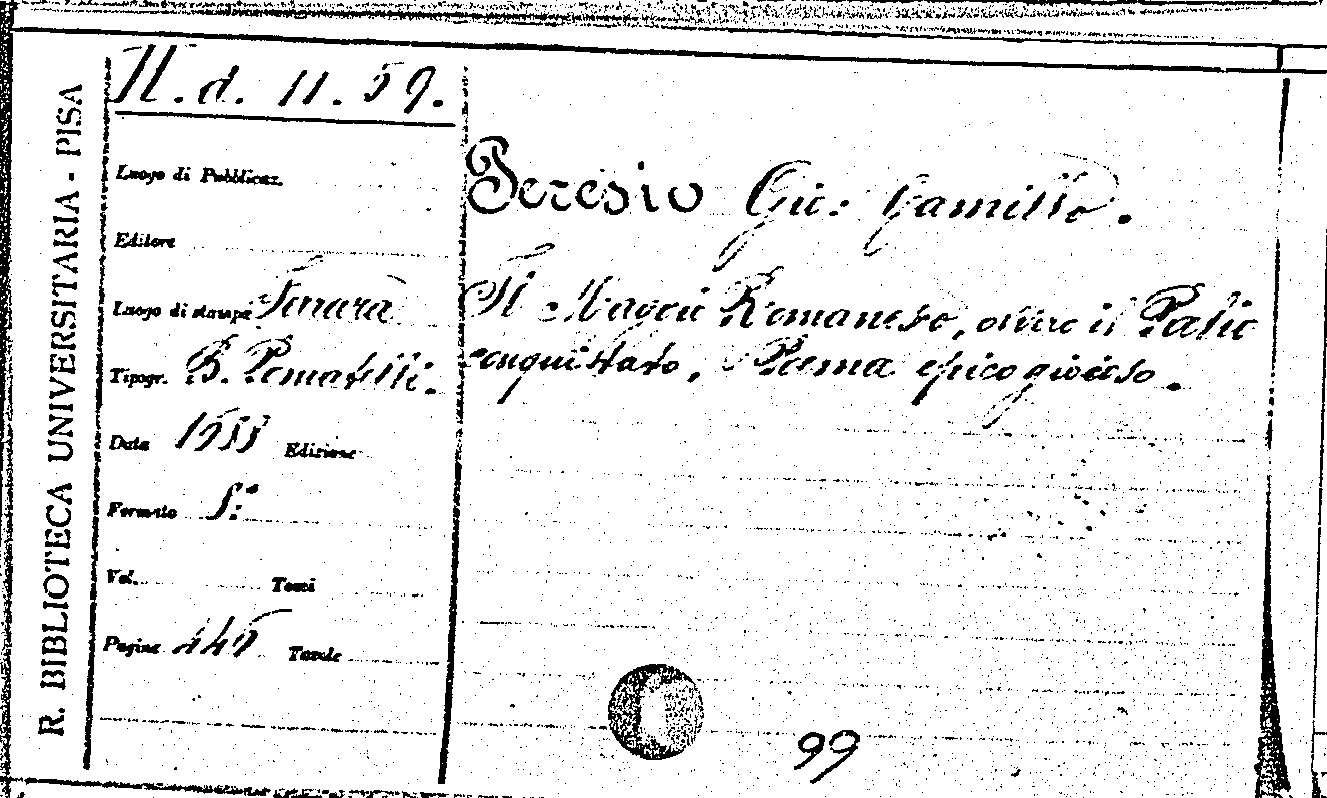 R. BIBLIOTECA UNIVERSITARIA - PISA
H. d. 11. 59.
Luogo di Pubblicaz.
Editore
Luogo di stampa Ferrara
Tipogr. B. Pomatelli.
Data
Edizione
Formato 8:°
Vol. Tomi
Pagine 445 Tavole
Peresio Gio: Camillo.
Il Maggio Romanesco, ovvero il Palio
conquistato, Poema epicogiocoso.
99